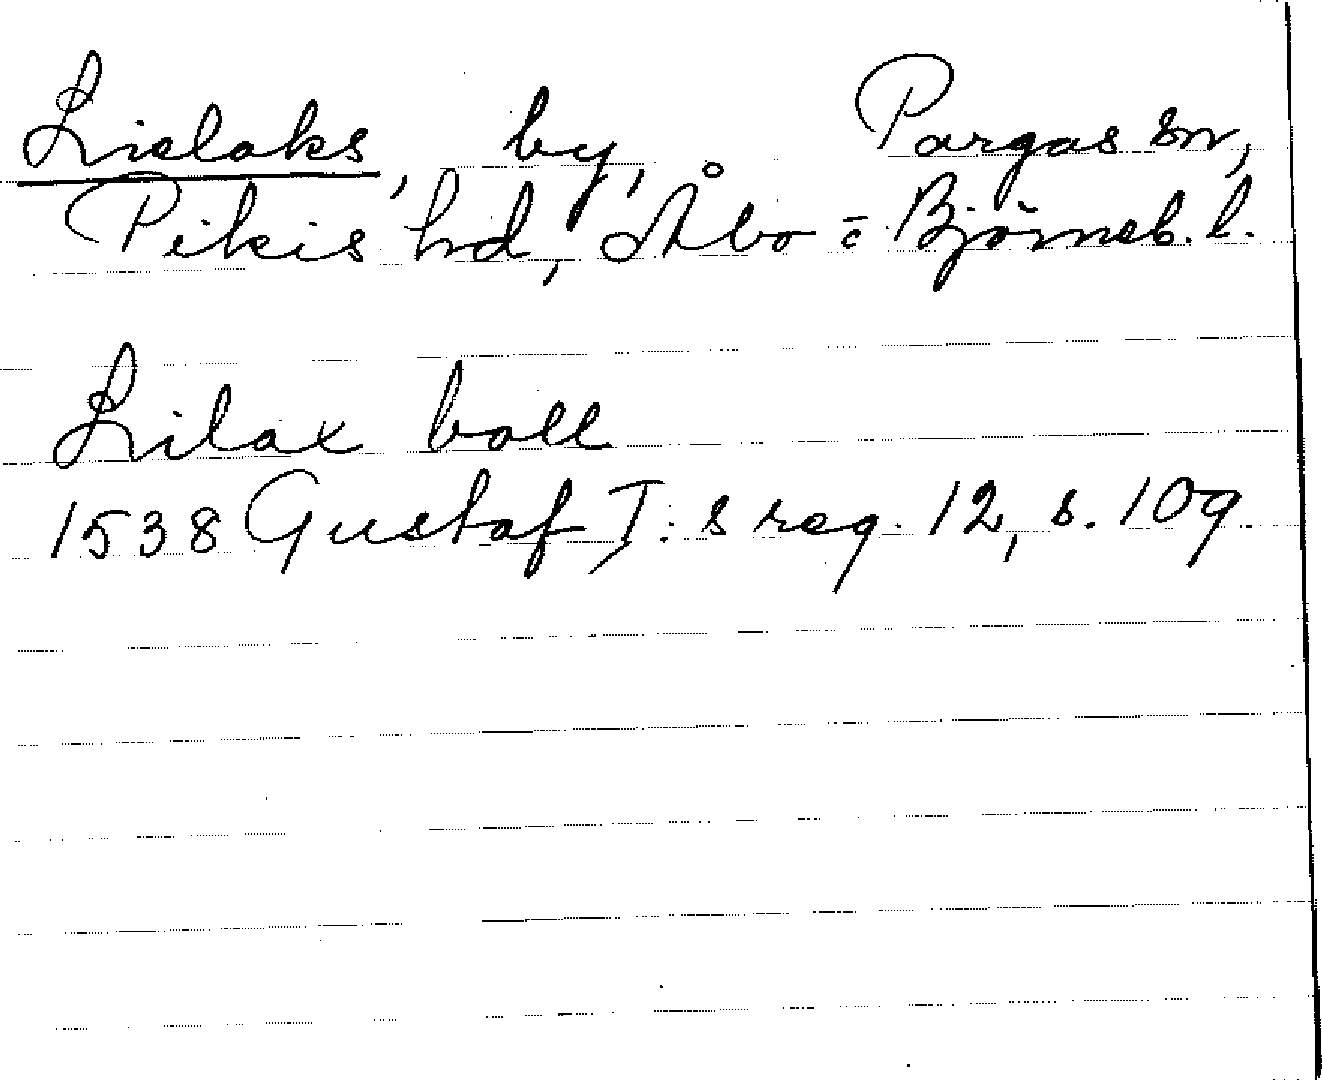 Lielaks, by, Pargas sn,
Pikis hd, Åbo = Björneb. l.
Lilax boll
1538 Gustaf I:s reg. 12, s. 109